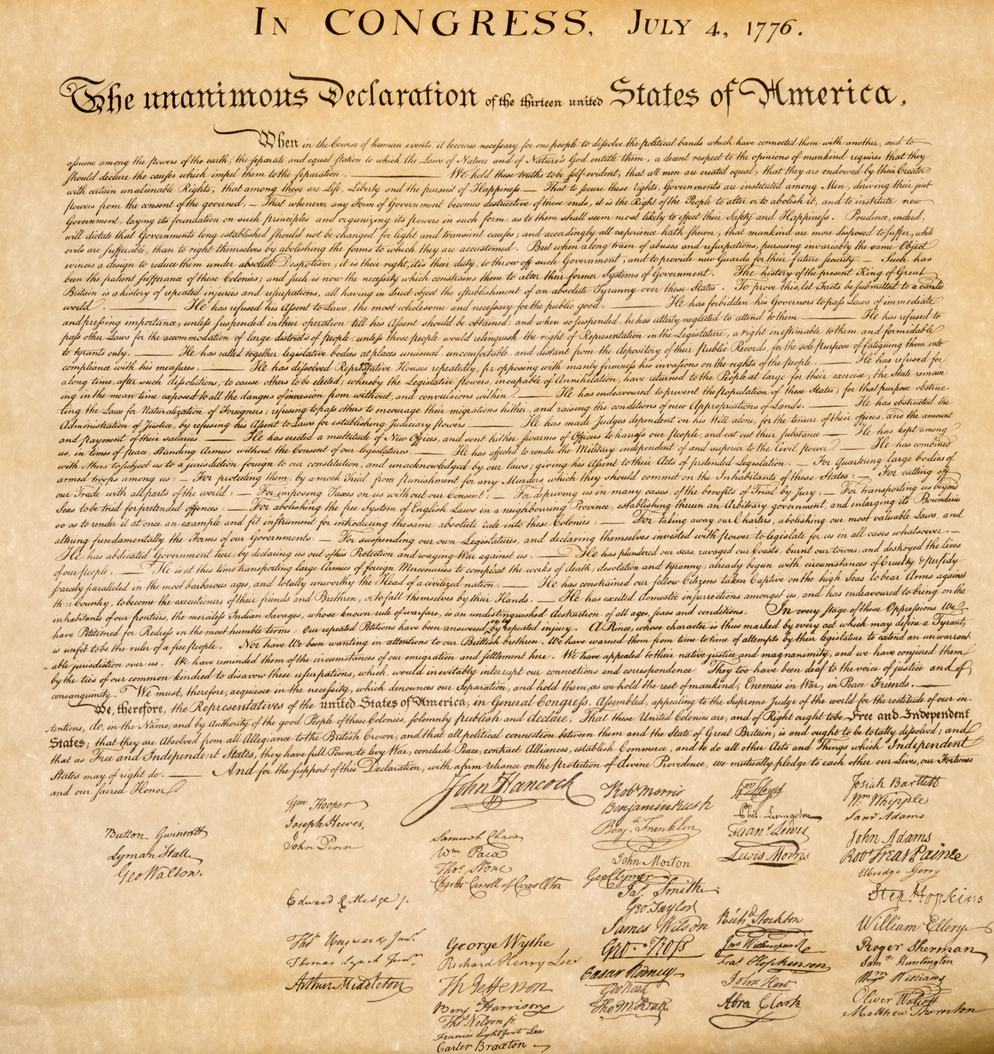 IN CONGRESS, JULY 4, 1776.
The unanimous Declaration of the thirteen united States of America,
When in the Course of human events, it becomes necessary for one people to dissolve the political bands which have connected them with another, and to
assume among the powers of the earth, the separate and equal station to which the Laws of Nature and of Nature's God entitle them, a decent respect to the opinions of mankind requires that they
should declare the causes which impel them to the separation. — We hold these truths to be self-evident, that all men are created equal, that they are endowed by their Creator
with certain unalienable Rights, that among these are Life, Liberty and the pursuit of Happiness — That to secure these rights, Governments are instituted among Men, deriving their just
powers from the consent of the governed, — That whenever any Form of Government becomes destructive of these ends, it is the Right of the People to alter or to abolish it, and to institute new
Government, laying its foundation on such principles and organizing its powers in such form, as to them shall seem most likely to effect their Safety and Happiness. Prudence, indeed,
will dictate that Governments long established should not be changed for light and transient causes; and accordingly all experience hath shewn, that mankind are more disposed to suffer, while
evils are sufferable, than to right themselves by abolishing the forms to which they are accustomed. But when a long train of abuses and usurpations, pursuing invariably the same Object
evinces a design to reduce them under absolute Despotism, it is their right, it is their duty, to throw off such Government, and to provide new Guards for their future security. — Such has
been the patient sufferance of these Colonies; and such is now the necessity which constrains them to alter their former Systems of Government. The history of the present King of Great
Britain is a history of repeated injuries and usurpations, all having in direct object the establishment of an absolute Tyranny over these States. To prove this, let Facts be submitted to a candid
world. — He has refused his Assent to Laws, the most wholesome and necessary for the public good. — He has forbidden his Governors to pass Laws of immediate
and pressing importance, unless suspended in their operation till his Assent should be obtained; and when so suspended, he has utterly neglected to attend to them — He has refused to
pass other Laws for the accommodation of large districts of people, unless those people would relinquish the right of Representation in the Legislature, a right inestimable to them and formidable
to tyrants only. — He has called together legislative bodies at places unusual, uncomfortable, and distant from the depository of their Public Records, for the sole purpose of fatiguing them into
compliance with his measures. — He has dissolved Representative Houses repeatedly, for opposing with manly firmness his invasions on the rights of the people. — He has refused for
a long time, after such dissolutions, to cause others to be elected; whereby the Legislative powers, incapable of Annihilation, have returned to the People at large for their exercise; the State remain
ing in the mean time exposed to all the dangers of invasion from without, and convulsions within. — He has endeavoured to prevent the population of these States; for that purpose obstruc-
ting the Laws for Naturalization of Foreigners; refusing to pass others to encourage their migrations hither, and raising the conditions of new Appropriations of Lands. — He has obstructed the
Administration of Justice, by refusing his Assent to Laws for establishing Judiciary powers — He has made Judges dependent on his Will alone, for the tenure of their offices, and the amount
and payment of their salaries — He has erected a multitude of New Offices, and sent hither swarms of Officers to harass our people, and eat out their substance — He has kept among
us, in times of peace, Standing Armies without the Consent of our legislatures. — He has affected to render the Military independent of and superior to the Civil power — He has combined
with others to subject us to a jurisdiction foreign to our constitution, and unacknowledged by our laws; giving his Assent to their Acts of pretended Legislation: — For Quartering large bodies of
armed troops among us: — For protecting them, by a mock Trial, from punishment for any Murders which they should commit on the Inhabitants of these States: — For cutting off
our Trade with all parts of the world: — For imposing Taxes on us without our Consent: — For depriving us in many cases, of the benefits of Trial by Jury: — For transporting us beyond
Seas to be tried for pretended offences — For abolishing the free System of English Laws in a neighbouring Province, establishing therein an Arbitrary government, and enlarging its Boundaries
so as to render it at once an example and fit instrument for introducing the same absolute rule into these Colonies: — For taking away our Charters, abolishing our most valuable Laws, and
altering fundamentally the Forms of our Governments: — For suspending our own Legislatures, and declaring themselves invested with power to legislate for us in all cases whatsoever. —
He has abdicated Government here, by declaring us out of his Protection and waging War against us. — He has plundered our seas, ravaged our Coasts, burnt our towns, and destroyed the lives
of our people. — He is at this time transporting large Armies of foreign Mercenaries to compleat the works of death, desolation and tyranny, already begun with circumstances of Cruelty & perfidy
scarcely paralleled in the most barbarous ages, and totally unworthy the Head of a civilized nation. — He has constrained our fellow Citizens taken Captive on the high Seas to bear Arms against
their Country, to become the executioners of their friends and Brethren, or to fall themselves by their Hands. — He has excited domestic insurrections amongst us, and has endeavoured to bring on the
inhabitants of our frontiers, the merciless Indian Savages, whose known rule of warfare, is an undistinguished destruction of all ages, sexes and conditions. In every stage of these Oppressions We
have Petitioned for Redress in the most humble terms: Our repeated Petitions have been answered only by repeated injury. A Prince, whose character is thus marked by every act which may define a Tyrant,
is unfit to be the ruler of a free people. Nor have We been wanting in attentions to our Brittish brethren. We have warned them from time to time of attempts by their legislature to extend an unwarrant
able jurisdiction over us. We have reminded them of the circumstances of our emigration and settlement here. We have appealed to their native justice and magnanimity, and we have conjured them
by the ties of our common kindred to disavow these usurpations, which, would inevitably interrupt our connections and correspondence They too have been deaf to the voice of justice and of
consanguinity. We must, therefore, acquiesce in the necessity, which denounces our Separation, and hold them, as we hold the rest of mankind, Enemies in War, in Peace Friends. —
We, therefore, the Representatives of the united States of America, in General Congress, Assembled, appealing to the Supreme Judge of the world for the rectitude of our in-
tentions, do, in the Name, and by Authority of the good People of these Colonies, solemnly publish and declare, That these United Colonies are, and of Right ought to be Free and Independent
States; that they are Absolved from all Allegiance to the British Crown, and that all political connection between them and the State of Great Britain, is and ought to be totally dissolved; and
that as Free and Independent States, they have full Power to levy War, conclude Peace, contract Alliances, establish Commerce, and to do all other Acts and Things which Independent
States may of right do. — And for the support of this Declaration, with a firm reliance on the protection of divine Providence, we mutually pledge to each other our Lives, our Fortunes
and our sacred Honor
Button Gwinnett
Lyman Hall
Geo Walton.
Wm Hooper
Joseph Hewes,
John Penn
Edward Rutledge
Thos Heyward Junr.
Thomas Lynch Junr.
Arthur Middleton
John Hancock
Samuel Chase
Wm Paca
Thos Stone
Charles Carroll of Carrollton
George Wythe
Richard Henry Lee
Th Jefferson
Benj Harrison
Thos Nelson jr.
Francis Lightfoot Lee
Carter Braxton
Robt Morris
Benjamin Rush
Benja Franklin
John Morton
Geo Clymer
Jas Smith
Geo Taylor
James Wilson
Geo. Ross
Caesar Rodney
Geo Read
Tho M:Kean
Wm Floyd
Phil. Livingston
Frans Lewis
Lewis Morris
Richd Stockton
Jno Witherspoon
Fras Hopkinson
John Hart
Abra Clark
Josiah Bartlett
Wm Whipple
Saml Adams
John Adams
Robt Treat Paine
Elbridge Gerry
Step Hopkins
William Ellery
Roger Sherman
Saml Huntington
Wm Williams
Oliver Wolcott
Matthew Thornton